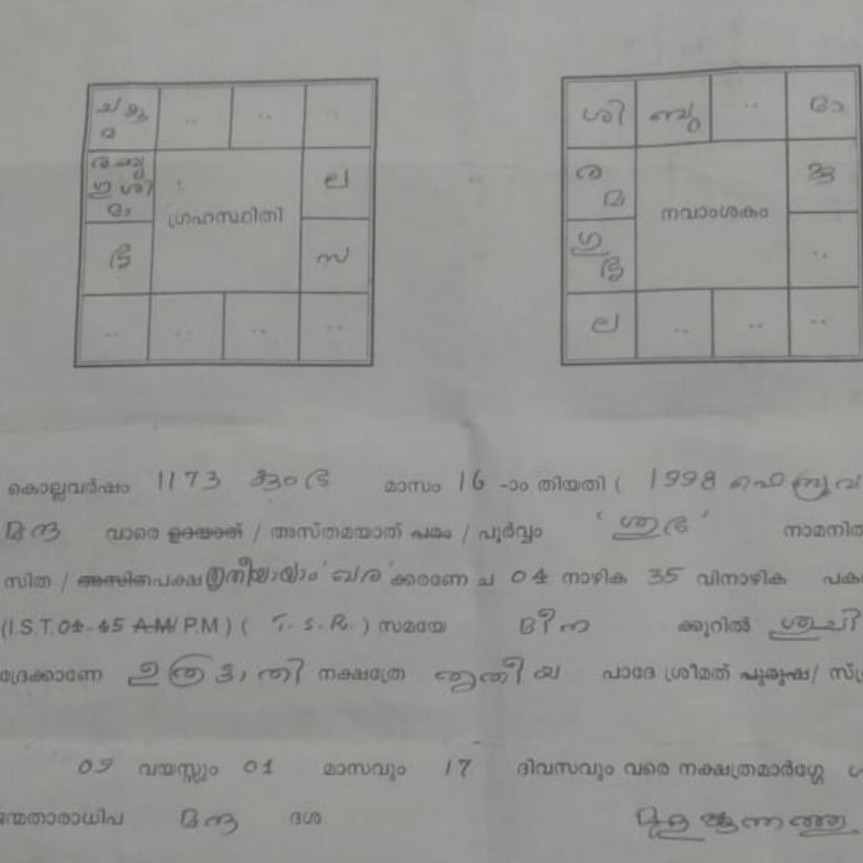 ച കു
മ
ര ബു
ഇ ശി
മാ
ല
ഗ്രഹസ്ഥിതി
സ
ശി ബു മാ
ര
മ
കു
നവാംശകം
ഗു
ല
കൊല്ലവർഷം 1173 കുംഭ മാസം 16 -ാം തിയതി ( 1998 ഫെബ്രുവ
മന്ദ വാരെ ഉദയാത് / അസ്തമയാത് പരം / പൂർവ്വം 'ശുഭ' നാമനിത
സിത / അസിതപക്ഷ തൃതീയായാം 'ഖര' ക്കരണേ ച 04 നാഴിക 35 വിനാഴിക പക
(I.S.T. 04-45 A.M/P.M ) ( T. S. R. ) സമയേ മീന ക്കൂറിൽ ശുചി
ദ്രേക്കാണേ ഉത്രട്ടാതി നക്ഷത്രേ തൃതീയ പാദേ ശ്രീമത് പുരുഷ/ സ്ത്ര
09 വയസ്സും 01 മാസവും 17 ദിവസവും വരെ നക്ഷത്രമാർഗ്ഗേ
ന്മതാരാധിപ മന്ദ ദശ